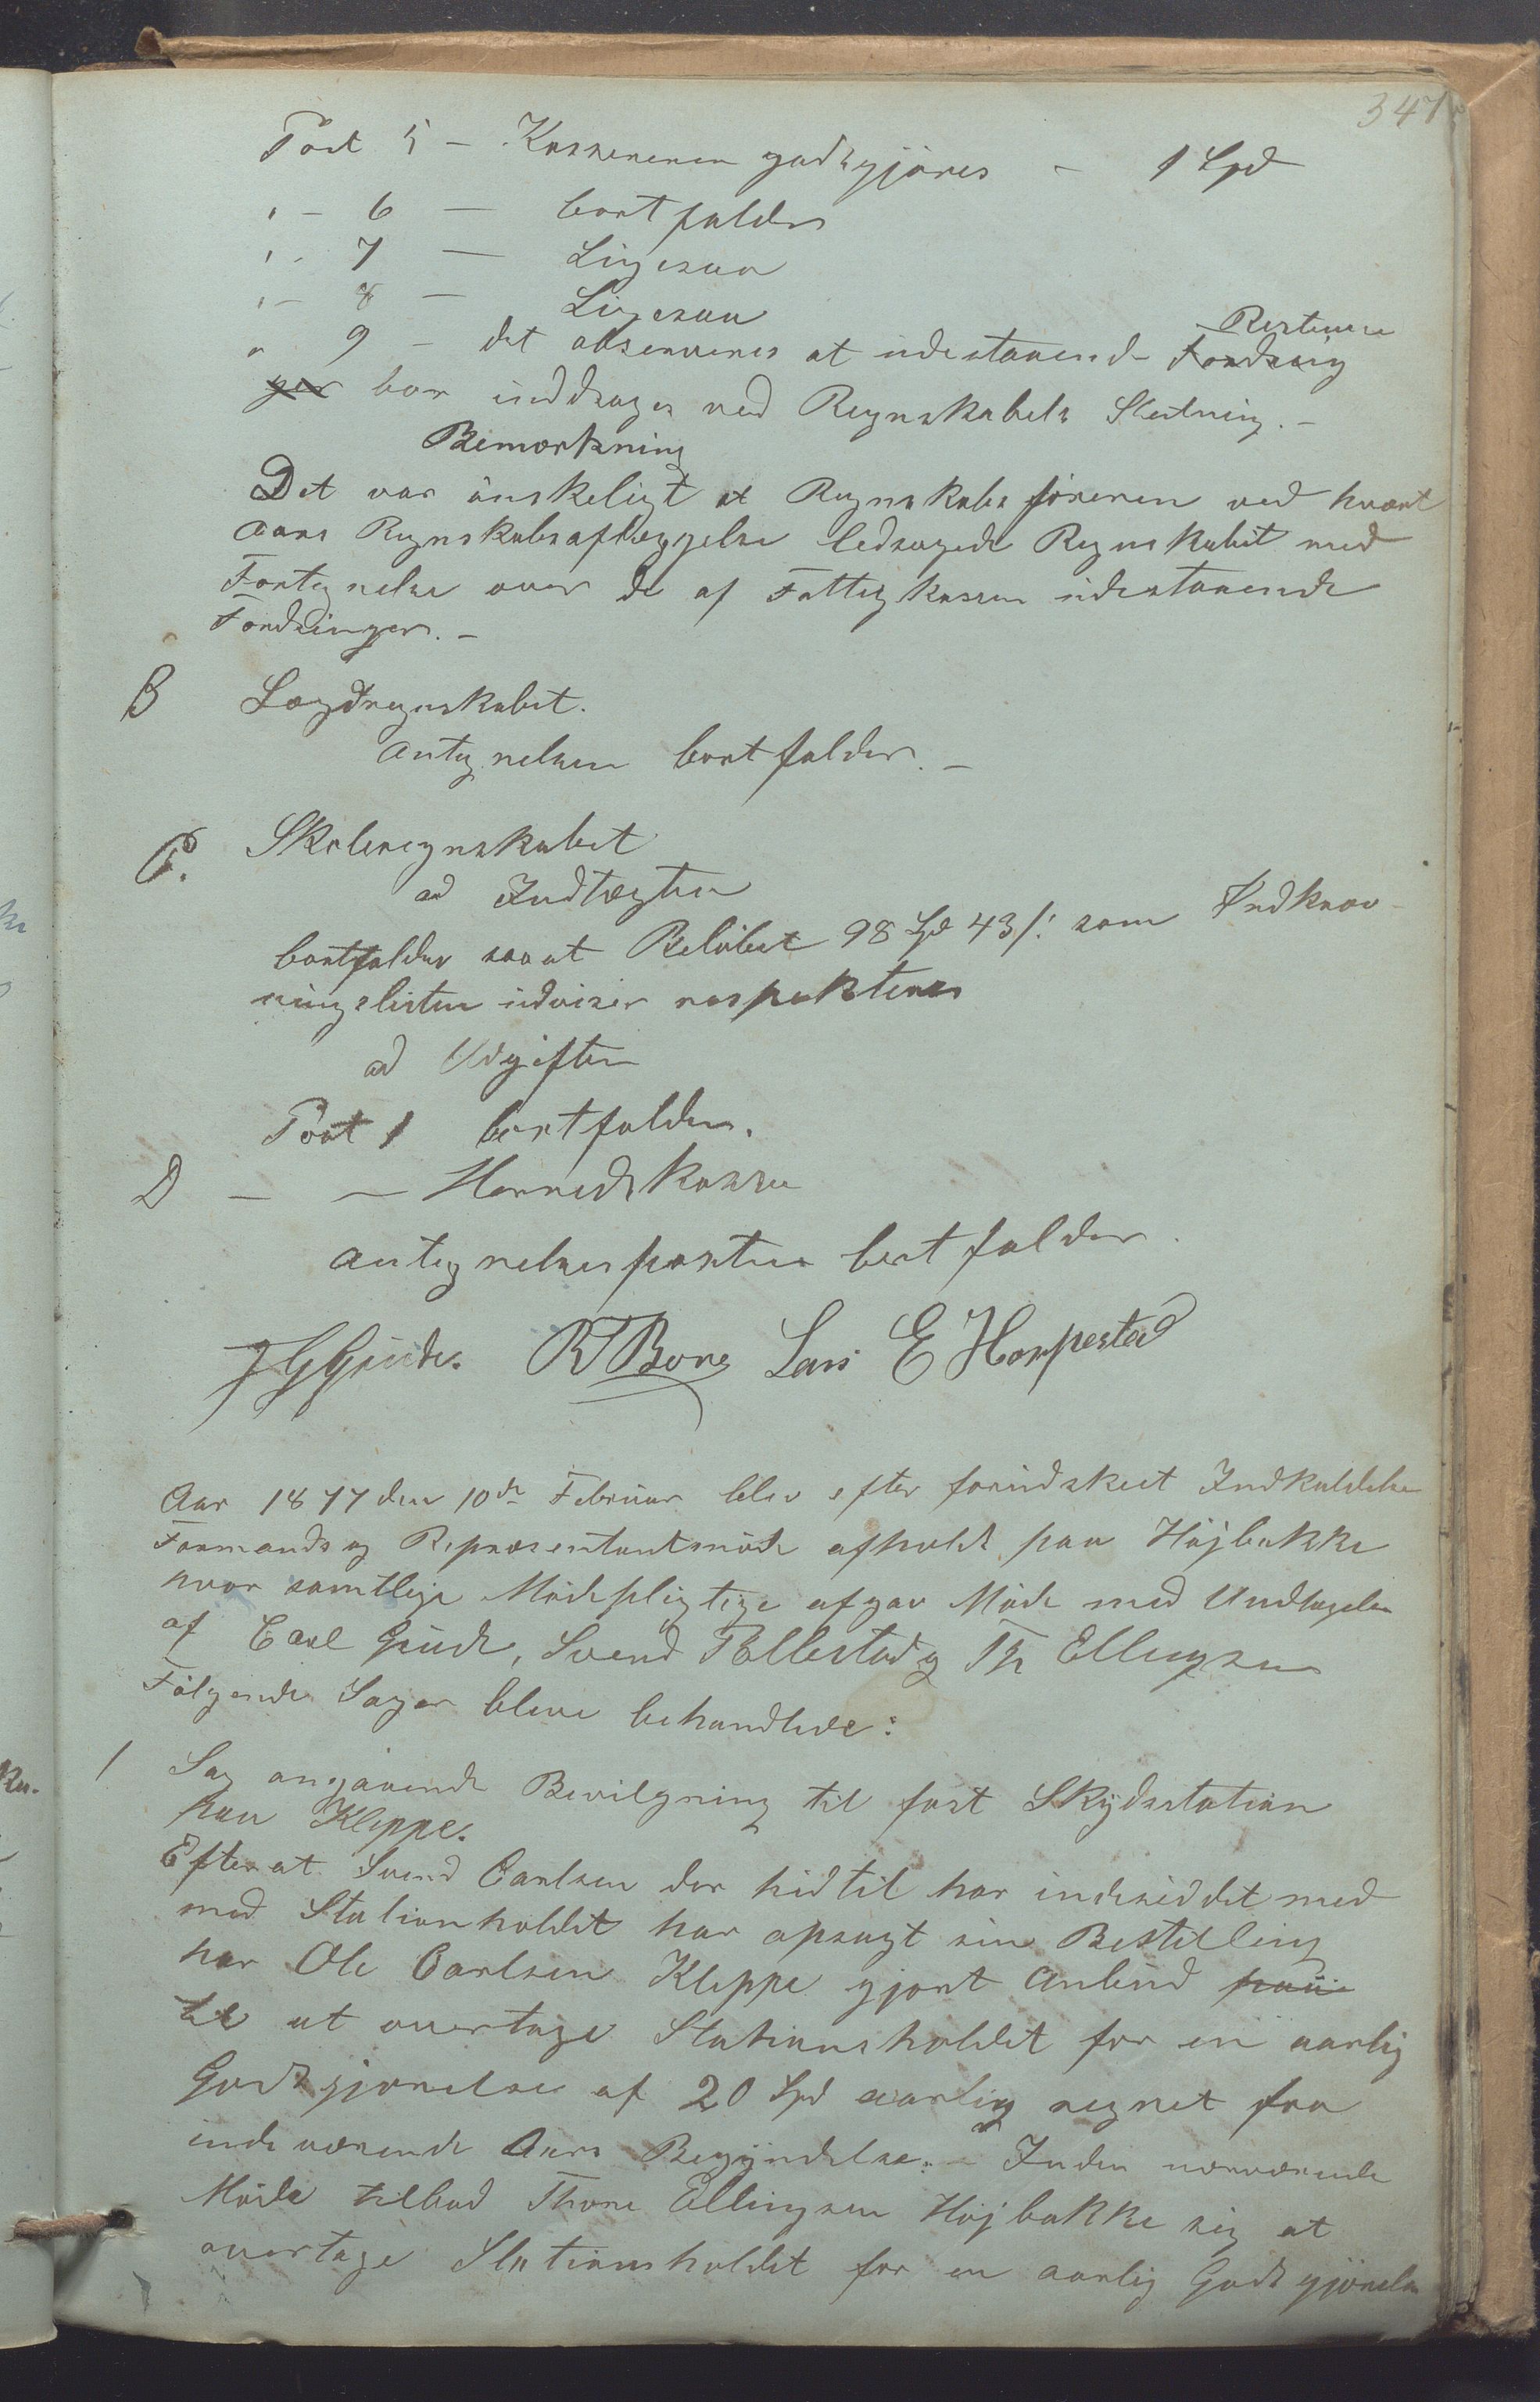 347
Post 5 - Kassereren godtgjöres - 1 Spd
" - 6 - bortfalder
" - 7 - Ligesaa
" - 8 - Ligesaa
Restancer
" 9 - det observeres at udestaaende Fordring
ger bör inddrages ved Regnskabets Slutning. -
Bemærkning
Det var önskeligt at Regnskabsföreren ved hvert
Aars Regnskabsaflæggelse ledsagede Regnskabet med
Fortegnelse over de af Fattigkassen udestaaende
Fordringer. -
B Lægdregnskabet.
Antegnelsen bortfalder. -
C. Skoleregnskabet
ad Indtægten
bortfalder saaat Belöbet 98 Spd 43 /: som Indkræv-
ningslisten udviser respekteres
ad Udgiften
Post 1 bortfalder.
D - - Herredskassen
Antegnelsesposten bortfalder.
J G Gude. R T Bore Lars E Horpestad
Aar 1877 den 10de Februar blev efter forudskeet Indkaldelse
Formands og Repræsentantmöde afholdt paa Höjbakke
hvor samtlige Mödepligtige afgav Möde med Undtagelse
af Carl Gude, Svend Tellestad og Th Ellingsen
Fölgende Sager bleve behandlede:
1 Sag angaaende Bevilgning til fast Skydsstation
paa Kleppe.
Efterat Svend Carlsen der hidtil har indesiddet med
med Stationholdet har opsagt sin Bestilling
har Ole Carlsen Kleppe gjort Anbud paa
til at overtage Stationsholdet for en aarlig
Godtgjörelse af 20 Spd aarlig regnet fra
indeværende Aars Begyndelse. - Inden nærværende
Möde tilbod Thore Ellingsen Höjbakke sig at
overtage Stationsholdet for en aarlig Godtgjörelse